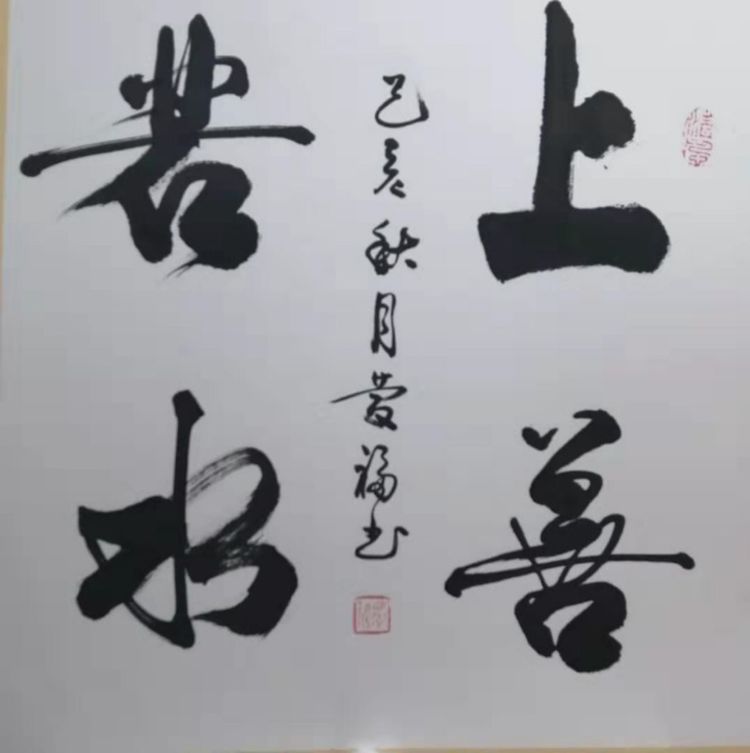 上善
若水
己亥秋月黄福书